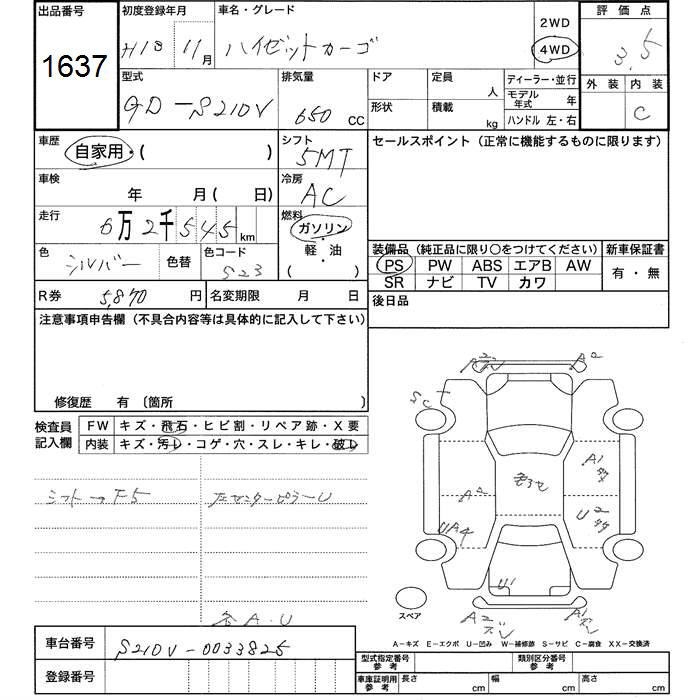 出品番号 初度登録年月 車名・グレード 2WD 評価点
1637 H18 11月 ハイゼットカーゴ 4WD 3.5
型式 排気量 ドア 定員 人 ディーラー・並行 外装 内装
GD-S210V 650 CC 形状 積載 kg モデル年式 年 C
ハンドル 左・右
車歴 自家用・( ) シフト 5MT セールスポイント(正常に機能するものに限ります)
車検 年 月( 日) 冷房 AC
走行 6万2千545km 燃料 ガソリン・軽・油 ( )
色 シルバー 色替 色コード S23
装備品(純正品に限り○をつけてください) 新車保証書
PS PW ABS エアB AW 有・無
SR ナビ TV カワ
R券 5,870円 名変期限 月 日 後日品
注意事項申告欄(不具合内容等は具体的に記入して下さい)
修復歴 有〔箇所 〕
検査員記入欄 FW キズ・飛石・ヒビ割・リペア跡・X要
内装 キズ・汚レ・コゲ・穴・スレ・キレ・破レ
シフト→F5 左センターピラーU
各A.U
A2 S C A1 A2 U2 UA4 U1 A2 A1
スペア
A-キズ E-エクボ U-凹み W-補修跡 S-サビ C-腐食 XX-交換済
車台番号 S210V-0033825
登録番号
型式指定番号参考 類別区分番号参考
車庫証明用参考 長さ cm 幅 cm 高さ cm